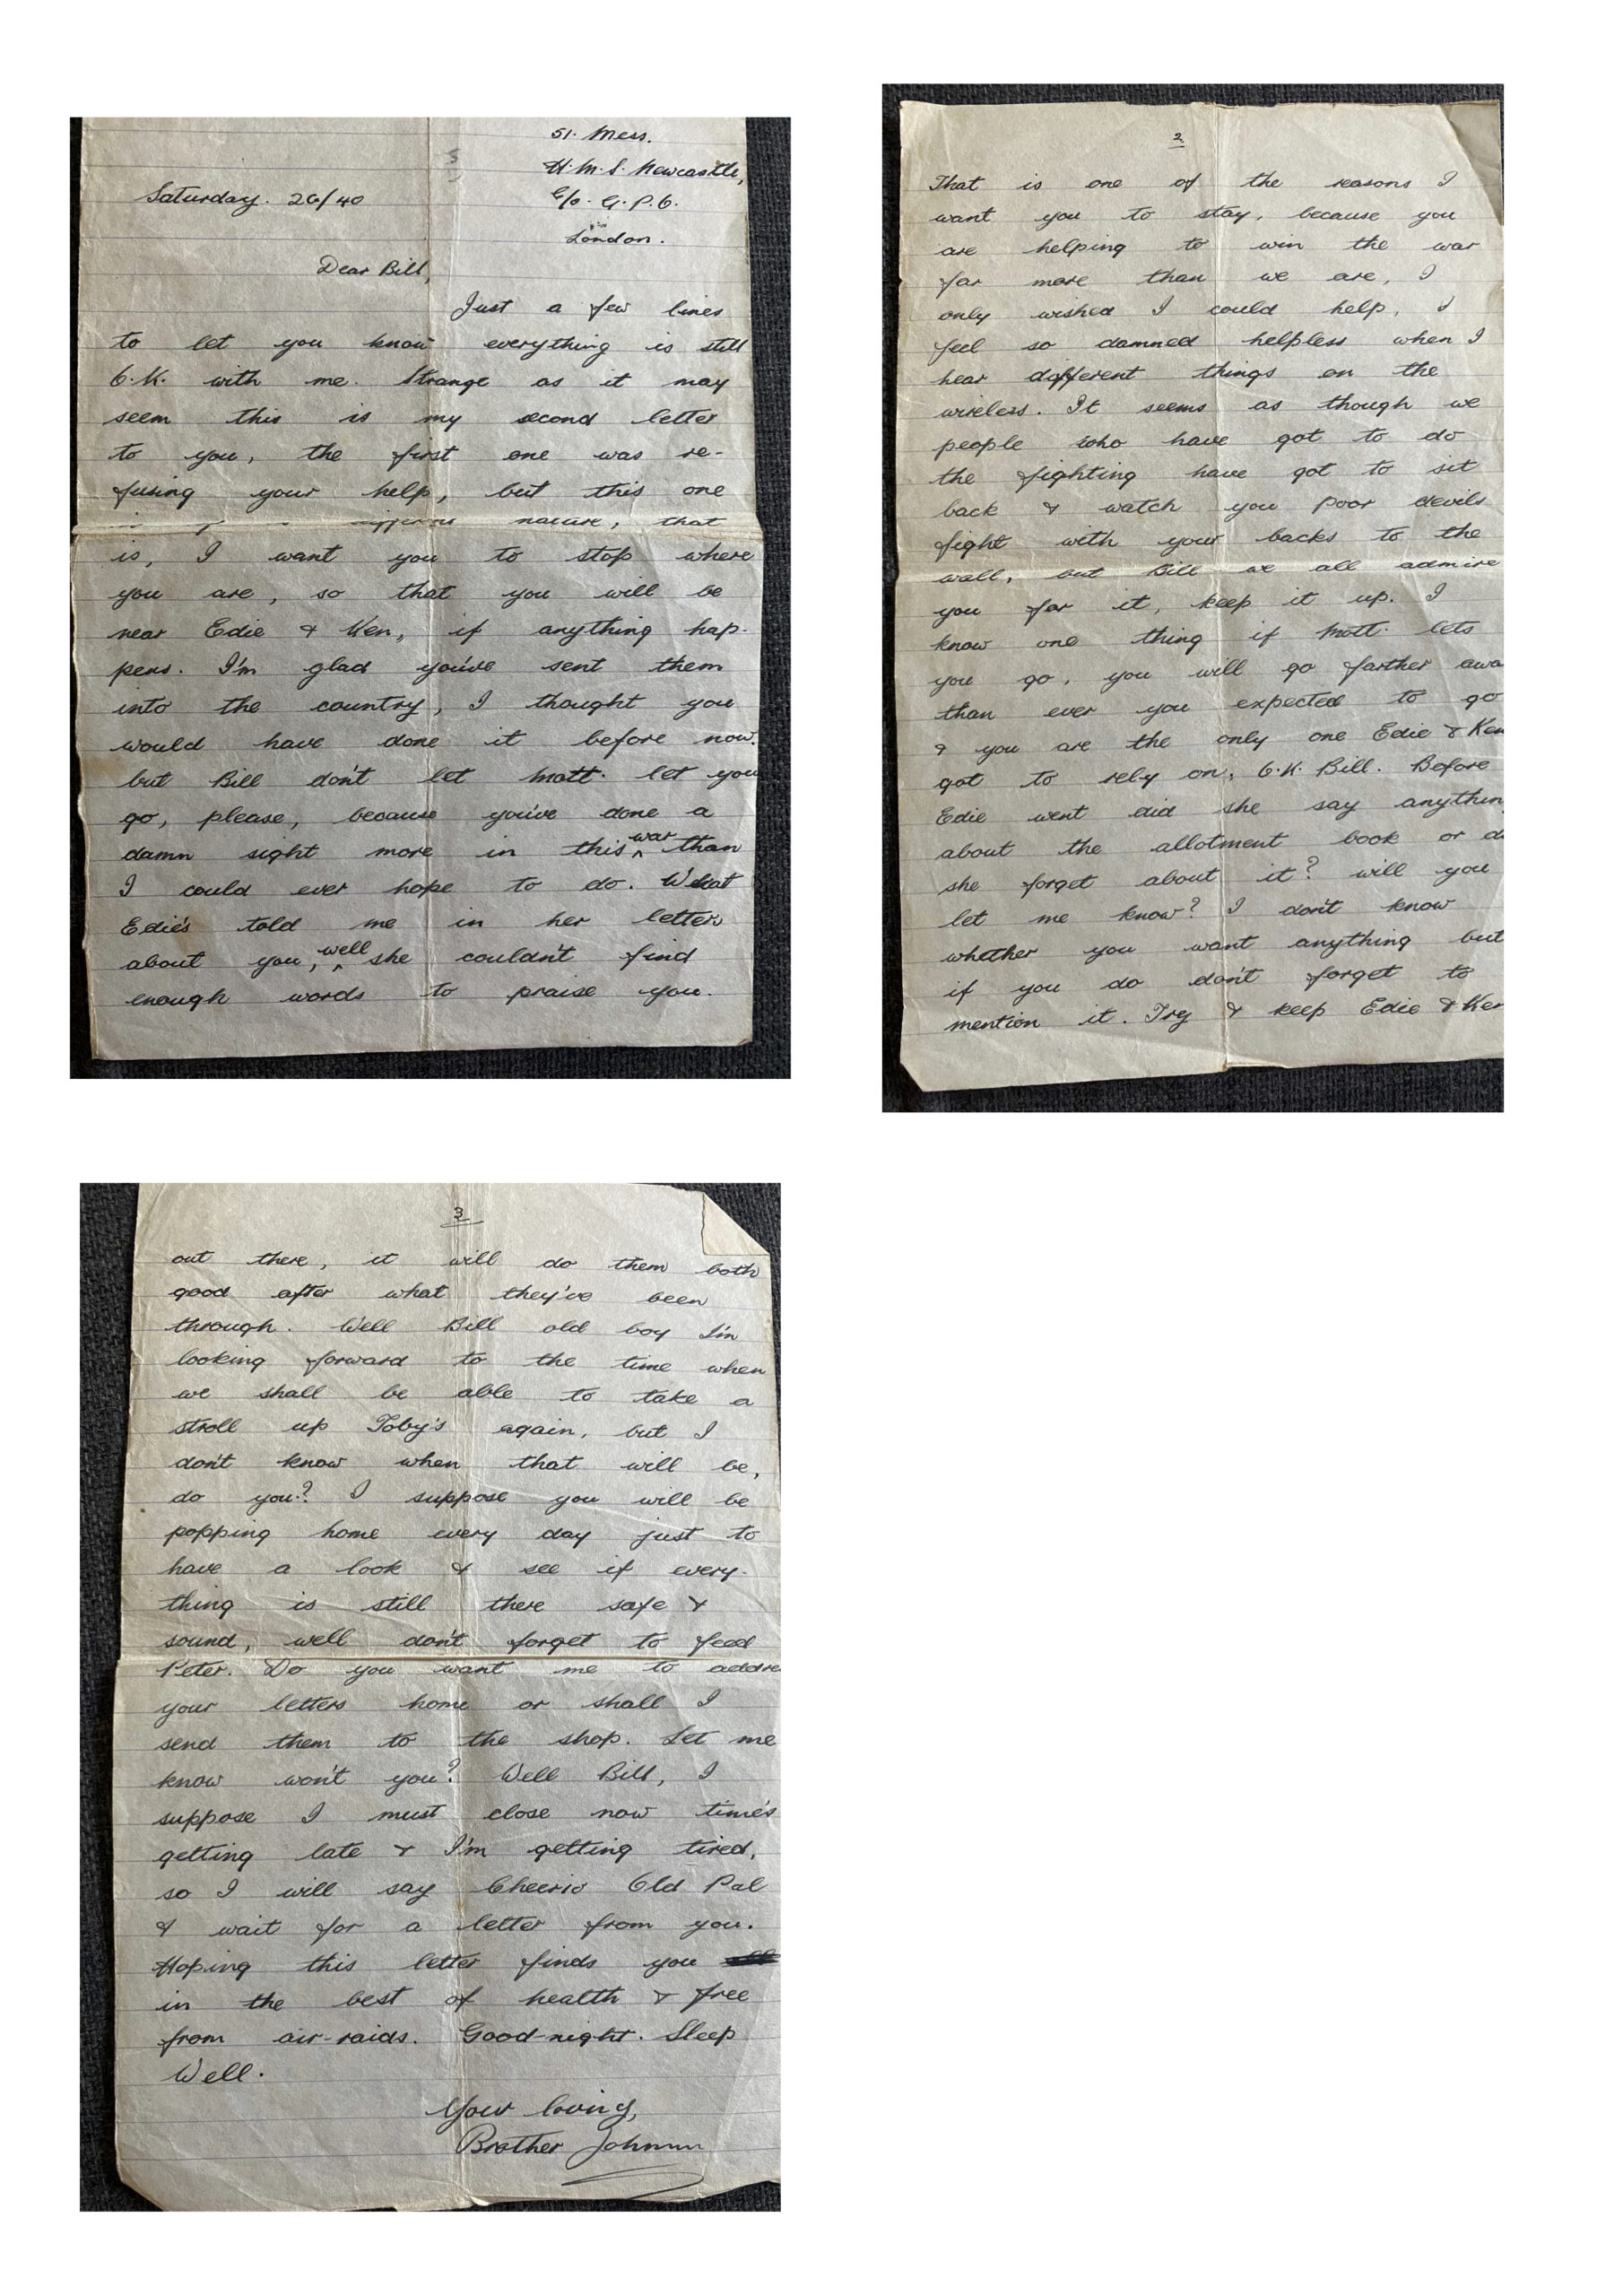 51. Mess.
H.M.S. Newcastle,
Saturday. 26/40
C/o. G.P.O.
London.
Dear Bill,
Just a few lines
to let you know everything is still
O.K. with me. Strange as it may
seem this is my second letter
to you, the first one was re-
fusing your help, but this one
nature, that
is, I want you to stop where
you are, so that you will be
near Edie & Ken, if anything hap-
pens. I'm glad you've sent them
into the country, I thought you
would have done it before now.
but Bill don't let Mott. let you
go, please, because you've done a
damn sight more in this war than
I could ever hope to do. What
Edie's told me in her letters
about you, well she couldn't find
enough words to praise you.
2
That is one of the reasons I
want you to stay, because you
are helping to win the war
far more than we are, I
only wished I could help, I
feel so damned helpless when I
hear different things on the
wireless. It seems as though we
people who have got to do
the fighting have got to sit
back & watch you poor devils
fight with your backs to the
wall, but Bill we all admire
you for it, keep it up. I
know one thing if Mott. lets
you go, you will go farther awa
than ever you expected to go
& you are the only one Edie & Ken
got to rely on, O.K. Bill. Before
Edie went did she say anythin
about the allotment book or d
she forget about it? will you
let me know? I don't know
whether you want anything but
if you do don't forget to
mention it. Try & keep Edie & Ken
3
out there, it will do them both
good after what they've been
through. Well Bill old boy I'm
looking forward to the time when
we shall be able to take a
stroll up Toby's again, but I
don't know when that will be,
do you? I suppose you will be
popping home every day just to
have a look & see if every-
thing is still there safe &
sound, well don't forget to feed
Peter. Do you want me to addre
your letters home or shall I
send them to the shop. Let me
know won't you? Well Bill, I
suppose I must close now time's
getting late & I'm getting tired,
so I will say Cheerio Old Pal
& wait for a letter from you.
Hoping this letter finds you
in the best of health & free
from air-raids. Good-night. Sleep
Well.
Your loving,
Brother Johnnn